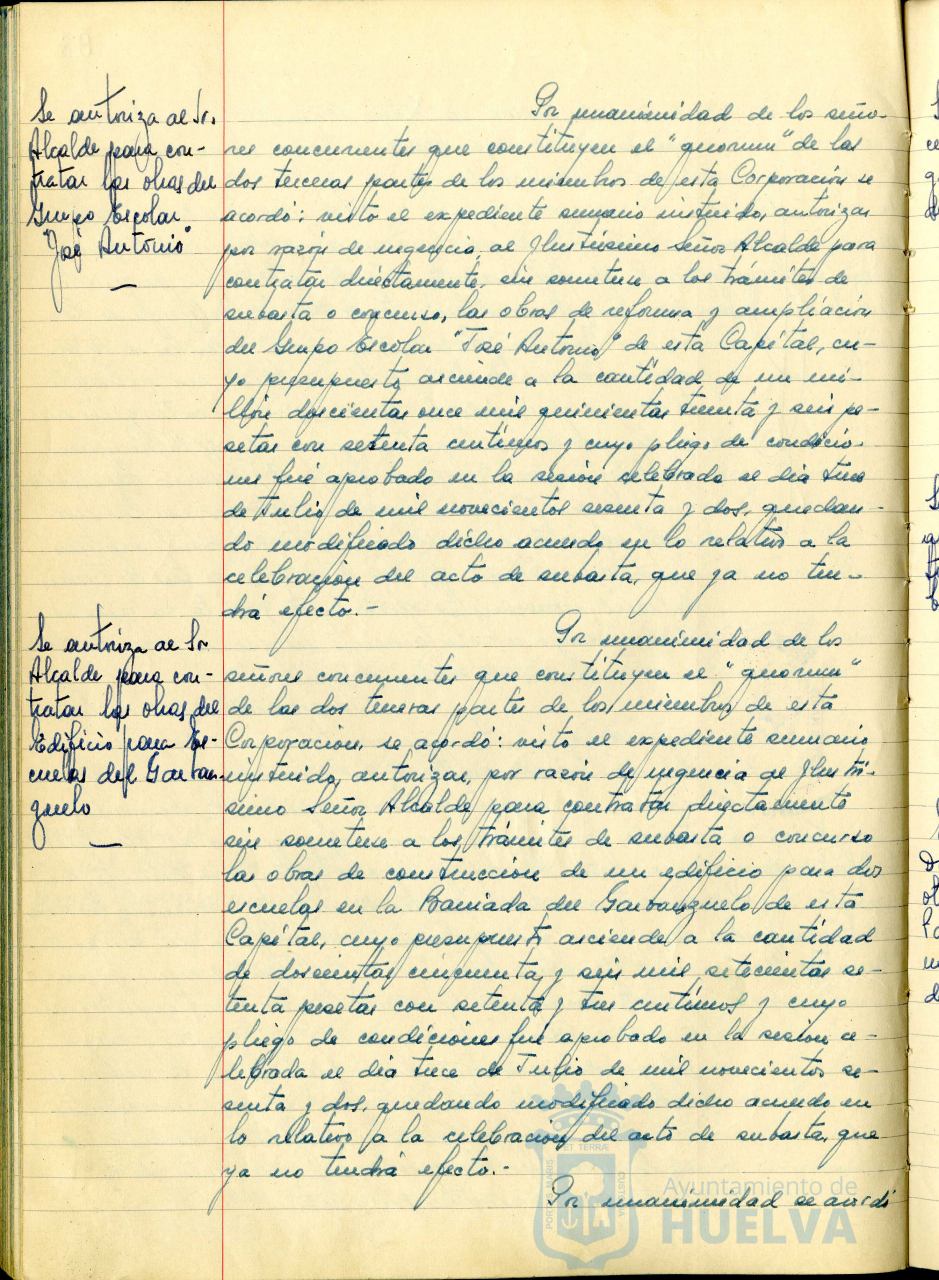 Se autoriza al Sr.
Alcalde para con-
tratar las obras del
Grupo Escolar
"José Antonio"
Por unanimidad de los seño-
res concurrentes que constituyen el "quorum" de las
dos terceras partes de los miembros de esta Corporación se
acordó: visto el expediente sumario instruido, autorizar
por razón de urgencia, al Ilustrísimo Señor Alcalde para
contratar directamente, sin someterse a los trámites de
subasta o concurso, las obras de reforma y ampliación
del Grupo Escolar "José Antonio" de esta Capital, cu-
yo presupuesto asciende a la cantidad de un mi-
llón doscientas once mil quinientas treinta y seis pe-
setas con setenta céntimos y cuyo pliego de condicio-
nes fué aprobado en la sesión celebrada el día trece
de Julio de mil novecientos sesenta y dos, quedan-
do modificado dicho acuerdo en lo relativo a la
celebración del acto de subasta, que ya no ten-
drá efecto.-
Se autoriza al Sr.
Alcalde para con-
tratar las obras del
Edificio para Es-
cuelas del Garban-
zuelo
Por unanimidad de los
señores concurrentes que constituyen el "quorum"
de las dos terceras partes de los miembros de esta
Corporación, se acordó: visto el expediente sumario
instruido, autorizar, por razón de urgencia al Ilustrí-
simo Señor Alcalde para contratar directamente
sin someterse a los trámites de subasta o concurso
las obras de construcción de un edificio para dos
escuelas en la Barriada del Garbanzuelo de esta
Capital, cuyo presupuesto asciende a la cantidad
de doscientas cincuenta y seis mil setecientas se-
tenta pesetas con setenta y tres céntimos y cuyo
pliego de condiciones fué aprobado en la sesión ce-
lebrada el día trece de Julio de mil novecientos se-
senta y dos, quedando modificado dicho acuerdo en
lo relativo a la celebración del acto de subasta, que
ya no tendrá efecto.-
Por unanimidad se acordó
Ayuntamiento de
HUELVA